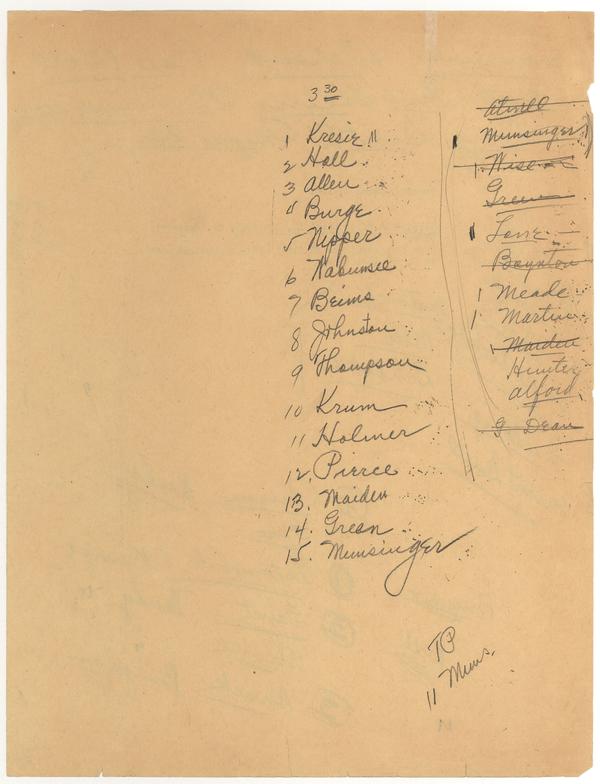 3 30
1 Kresie 11
2 Hall
3 Allen
4 Burge
5 Nipper
6 Wabunsee
7 Beims
8 Johnston
9 Thompson
10 Krum
11 Holmer
12. Pierce
13. Maiden
14. Green
15. Munsinger
Munsinger
1. Wise
Green
Boynton
1 Meade
1 Martin
1 Maiden
Hunter
Alford
G Dean
TP
11 Muns.